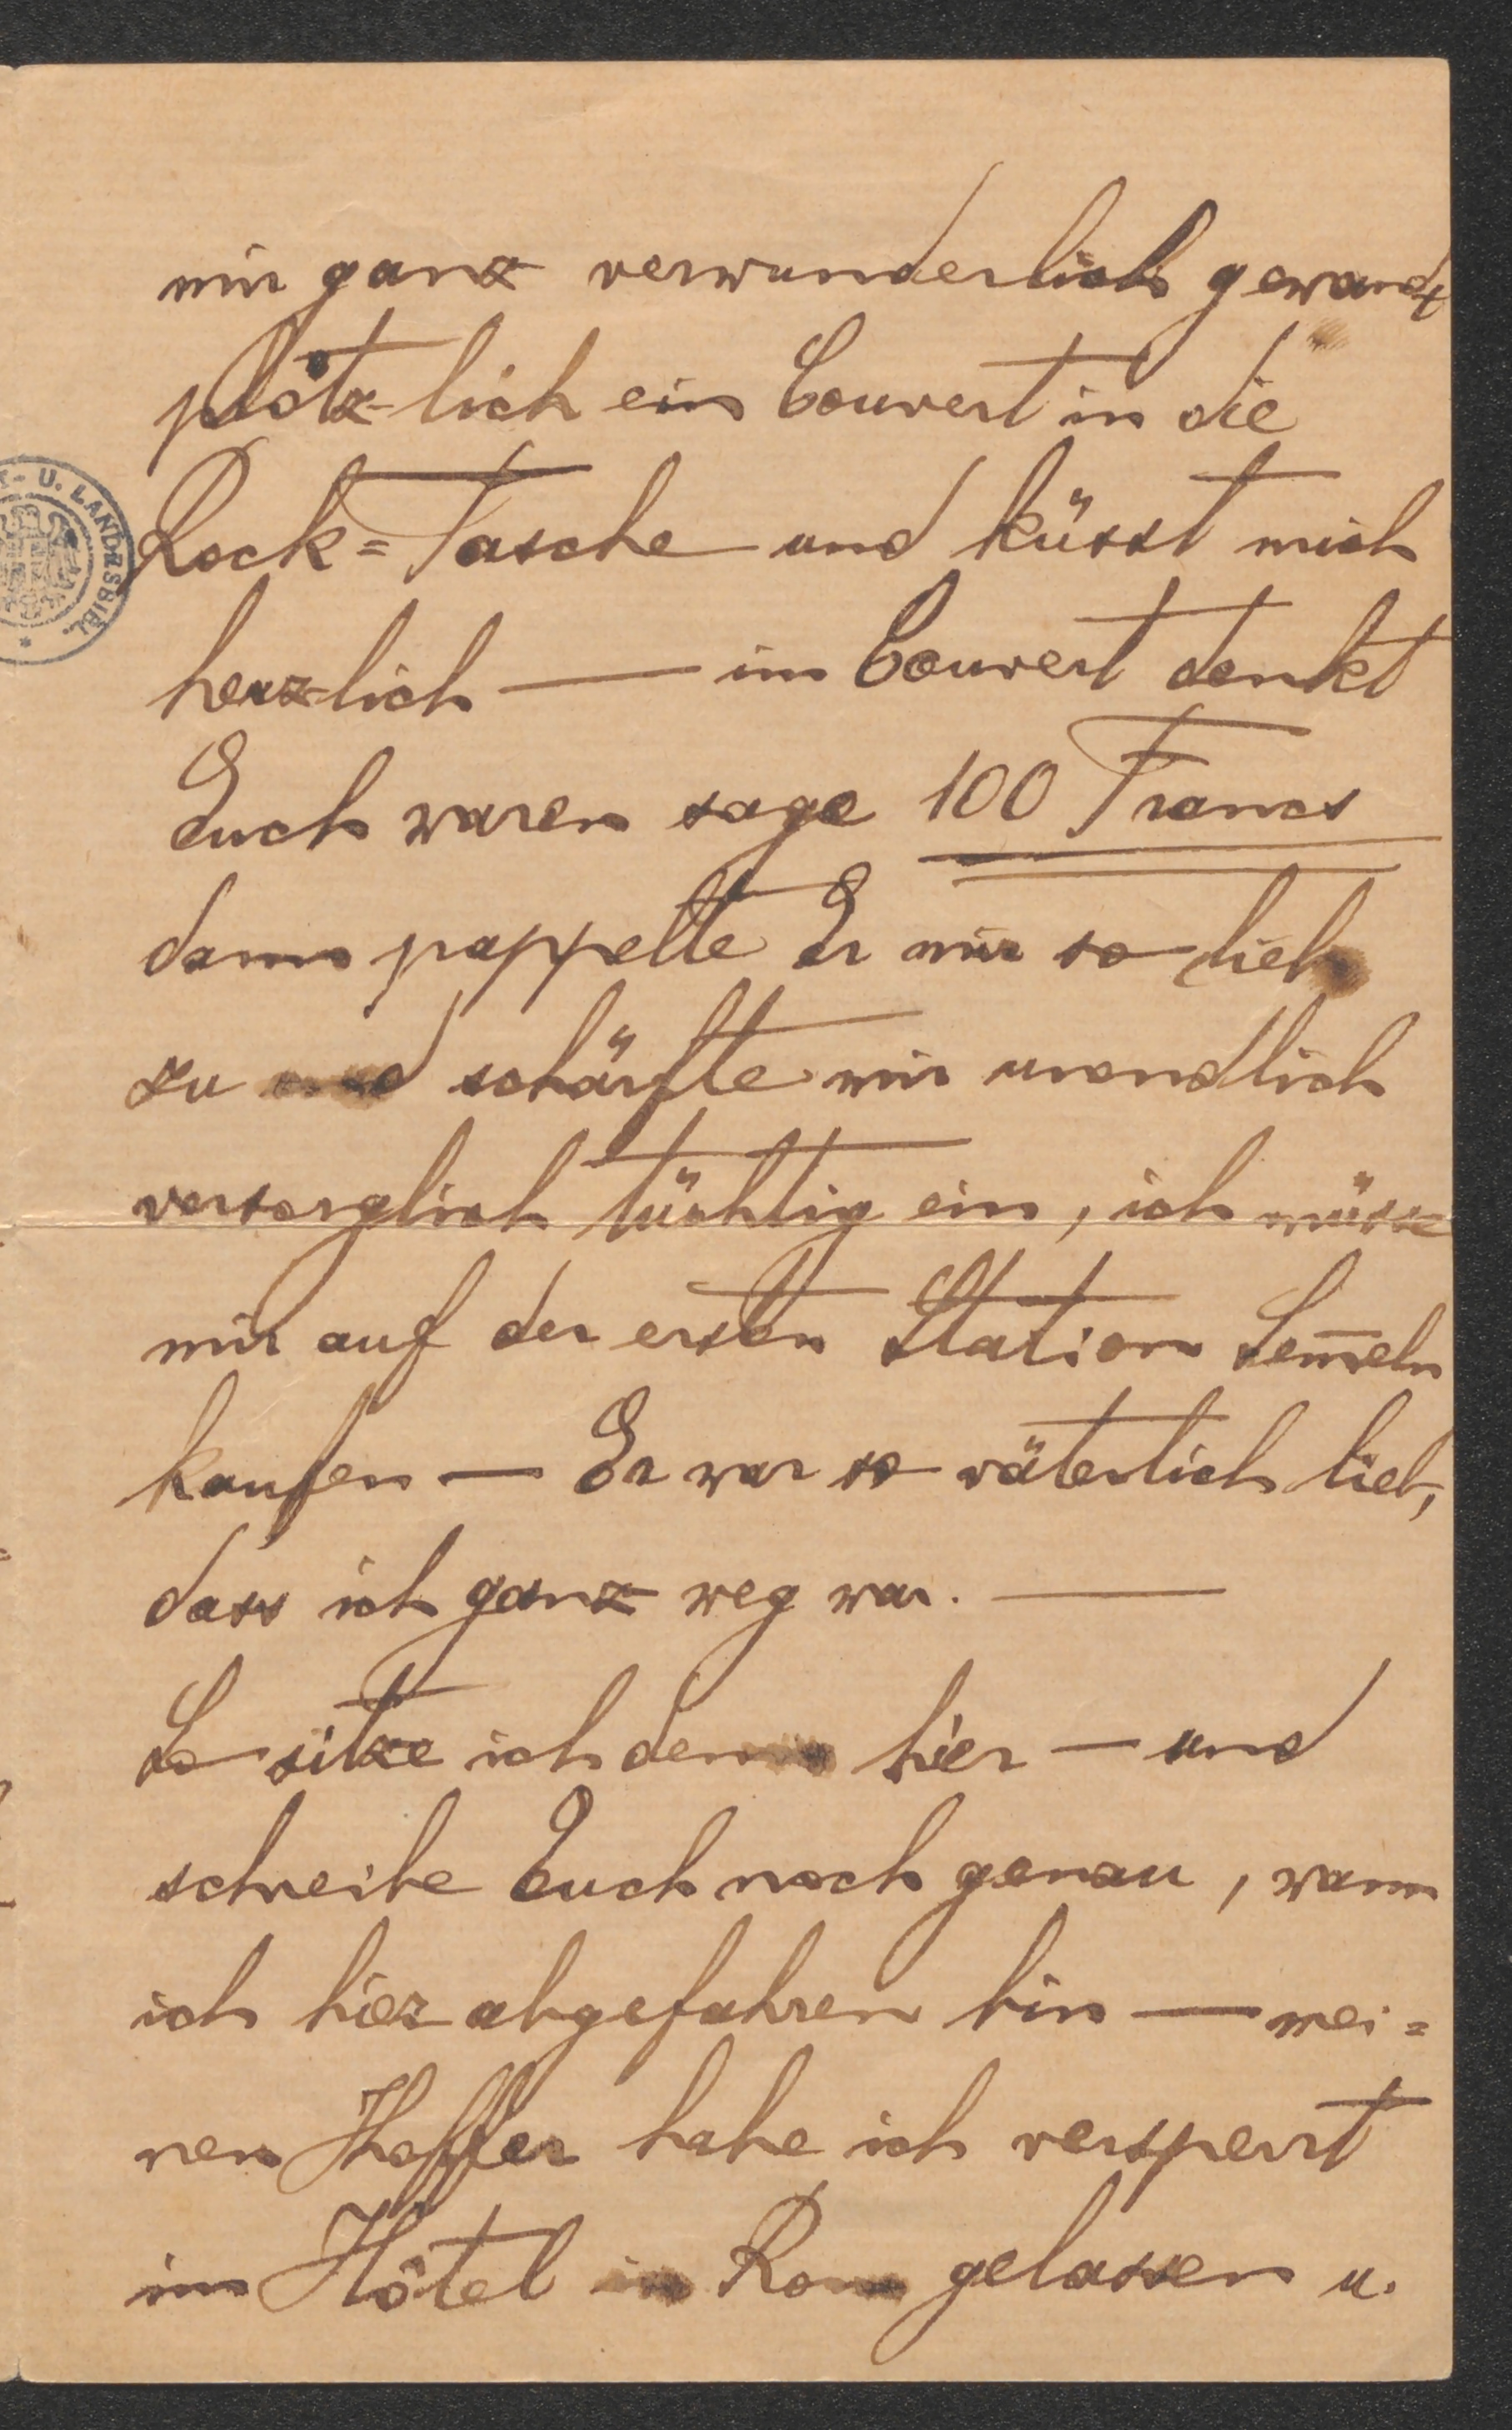 mir ganz verwunderlich gewandt
plötzlich ein Couvert in die
Rock=Tasche und küsst mich
herzlich — im Couvert denkt
Euch waren sage 100 Francs
dann pappelte Er mir so lieb
zu und schärfte mir unendlich
versorglich tüchtig ein, ich müsse
mir auf der ersten Station Sem̅eln
kaufen — Er war so väterlich lieb,
dass ich ganz weg war. —
So sitze ich denn hier — und
schreibe Euch noch genau, wann
ich hier abgefahren bin — mei=
nen Koffer habe ich versperrt
im Hôtel in Rom gelassen u.
U. LANDESBIBL.